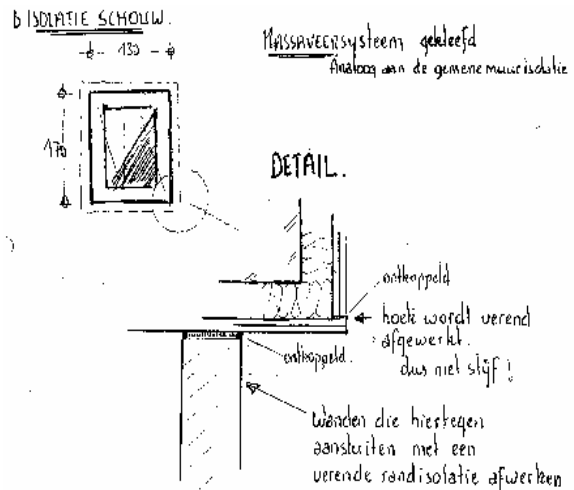 B ISOLATIE SCHOUW.
130
170
MASSAVEERsysteem gekleefd
Analoog aan de gemene muurisolatie
DETAIL.
ontkoppeld
hoek wordt verend
afgewerkt.
dus niet stijf !
ontkoppeld.
Wanden die hiertegen
aansluiten met een
verende randisolatie afwerken